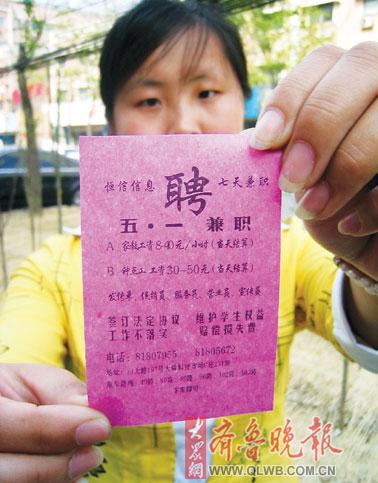 恒信信息 聘 七天兼职
五·一 兼职
A 家教工资8-40元/小时(当天结算)
B 钟点工工资30-50元(当天结算)
发传单、促销员、服务员、营业员、宣传员
签订法定协议 维护学生权益
工作不落实 赔偿损失费
电话:81807955 81805672
地址:
大众網 齐鲁晚报
WWW.QLWB.COM.CN